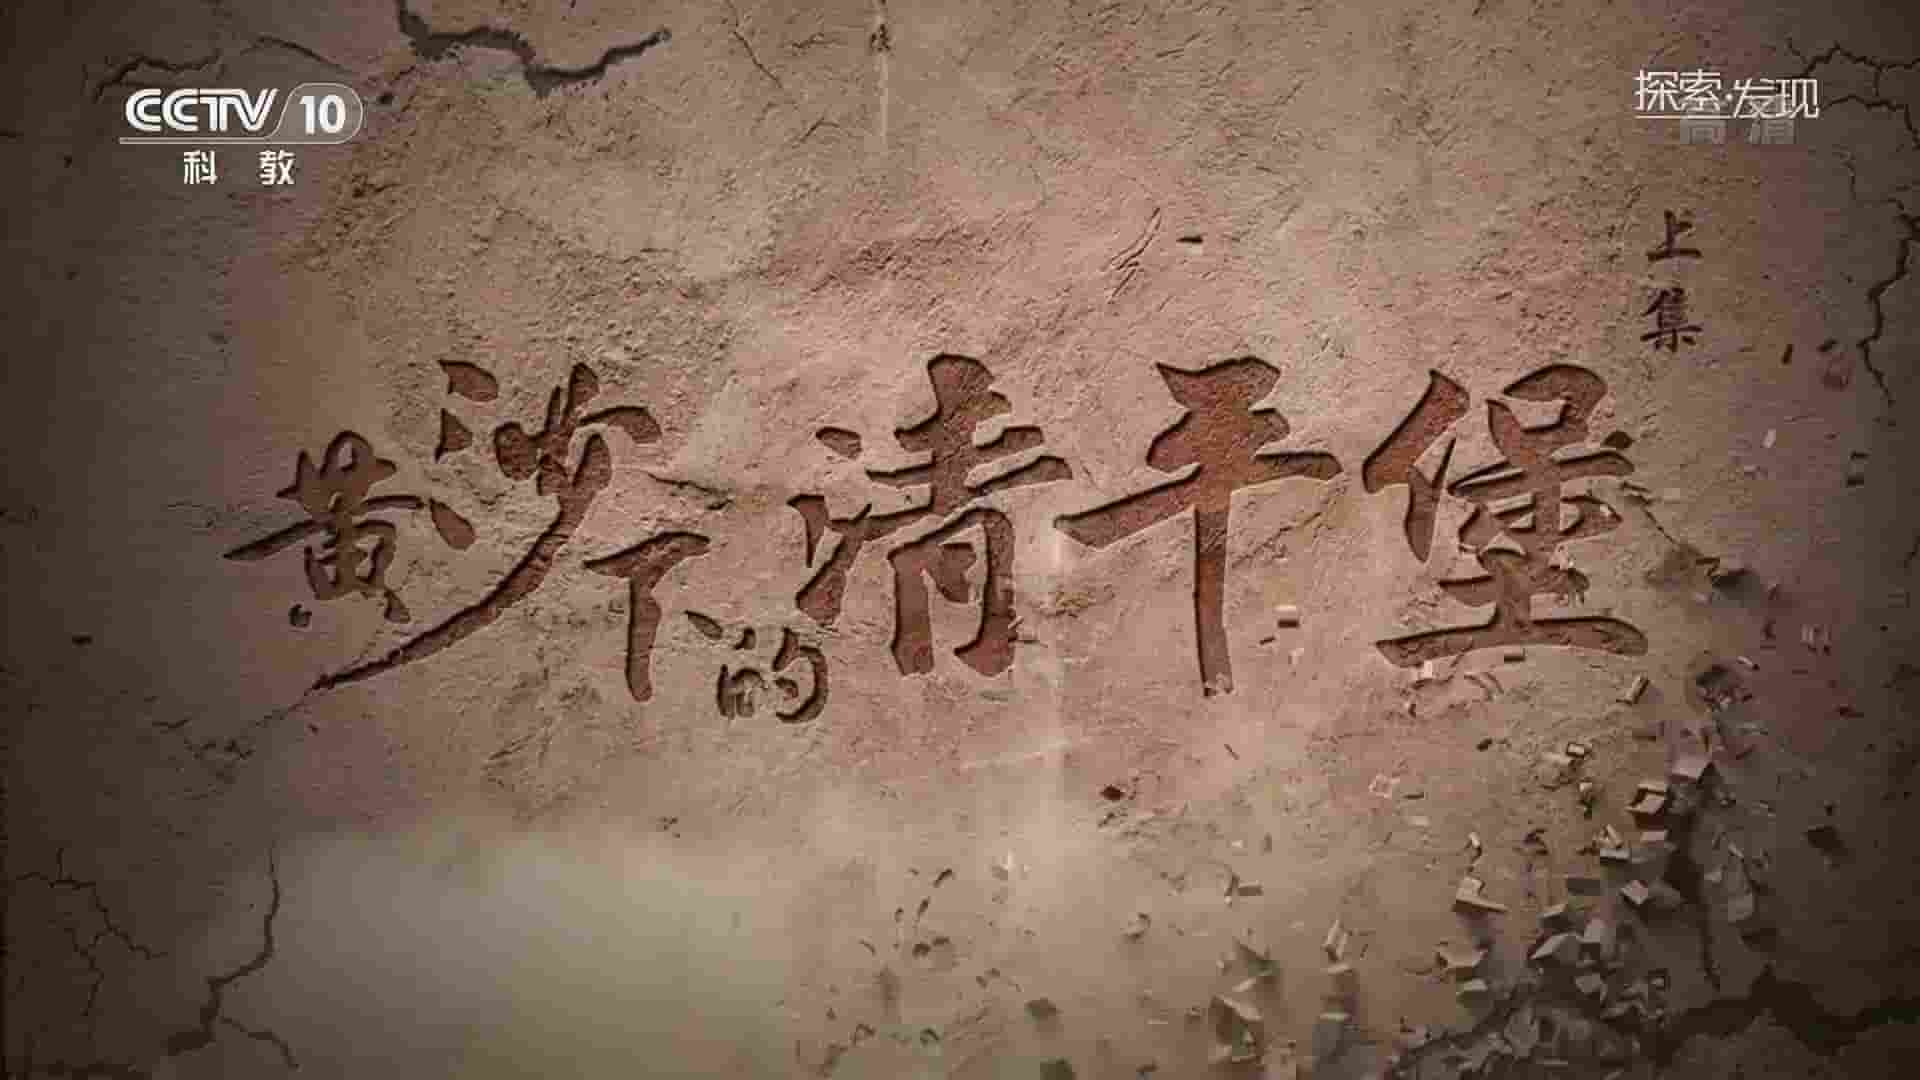 CCTV 10
科教
探索·发现
高清
上集
黄沙下的清平堡